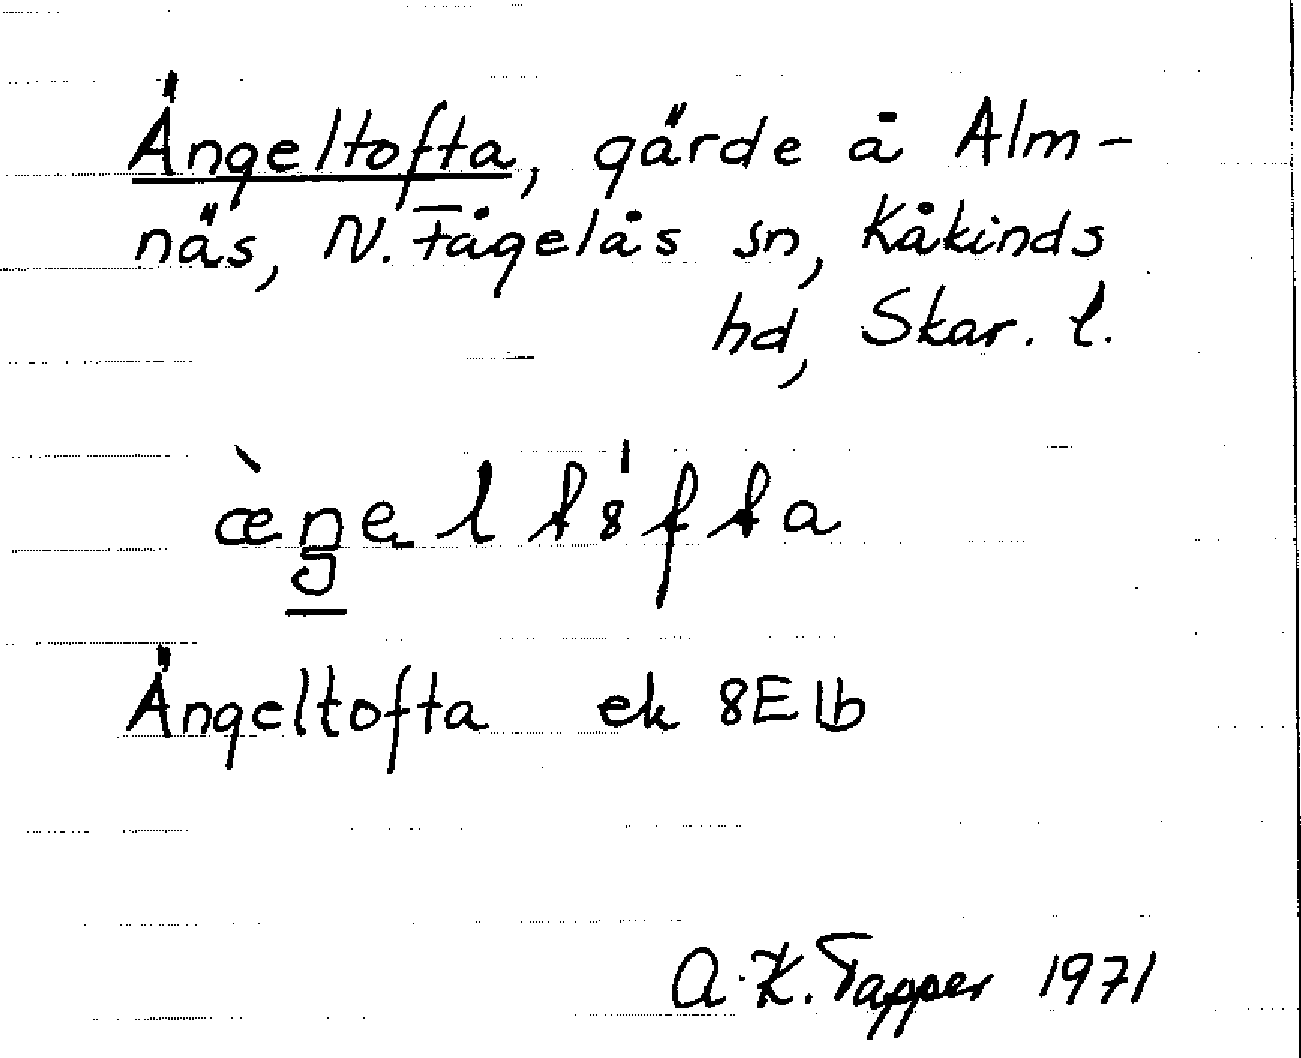 Ängeltofta, gärde å Alm-
näs, N. Fågelås sn, Kåkinds
hd, Skar. l.
Ängeltofta ek 8E1b
A.K. Tapper 1971